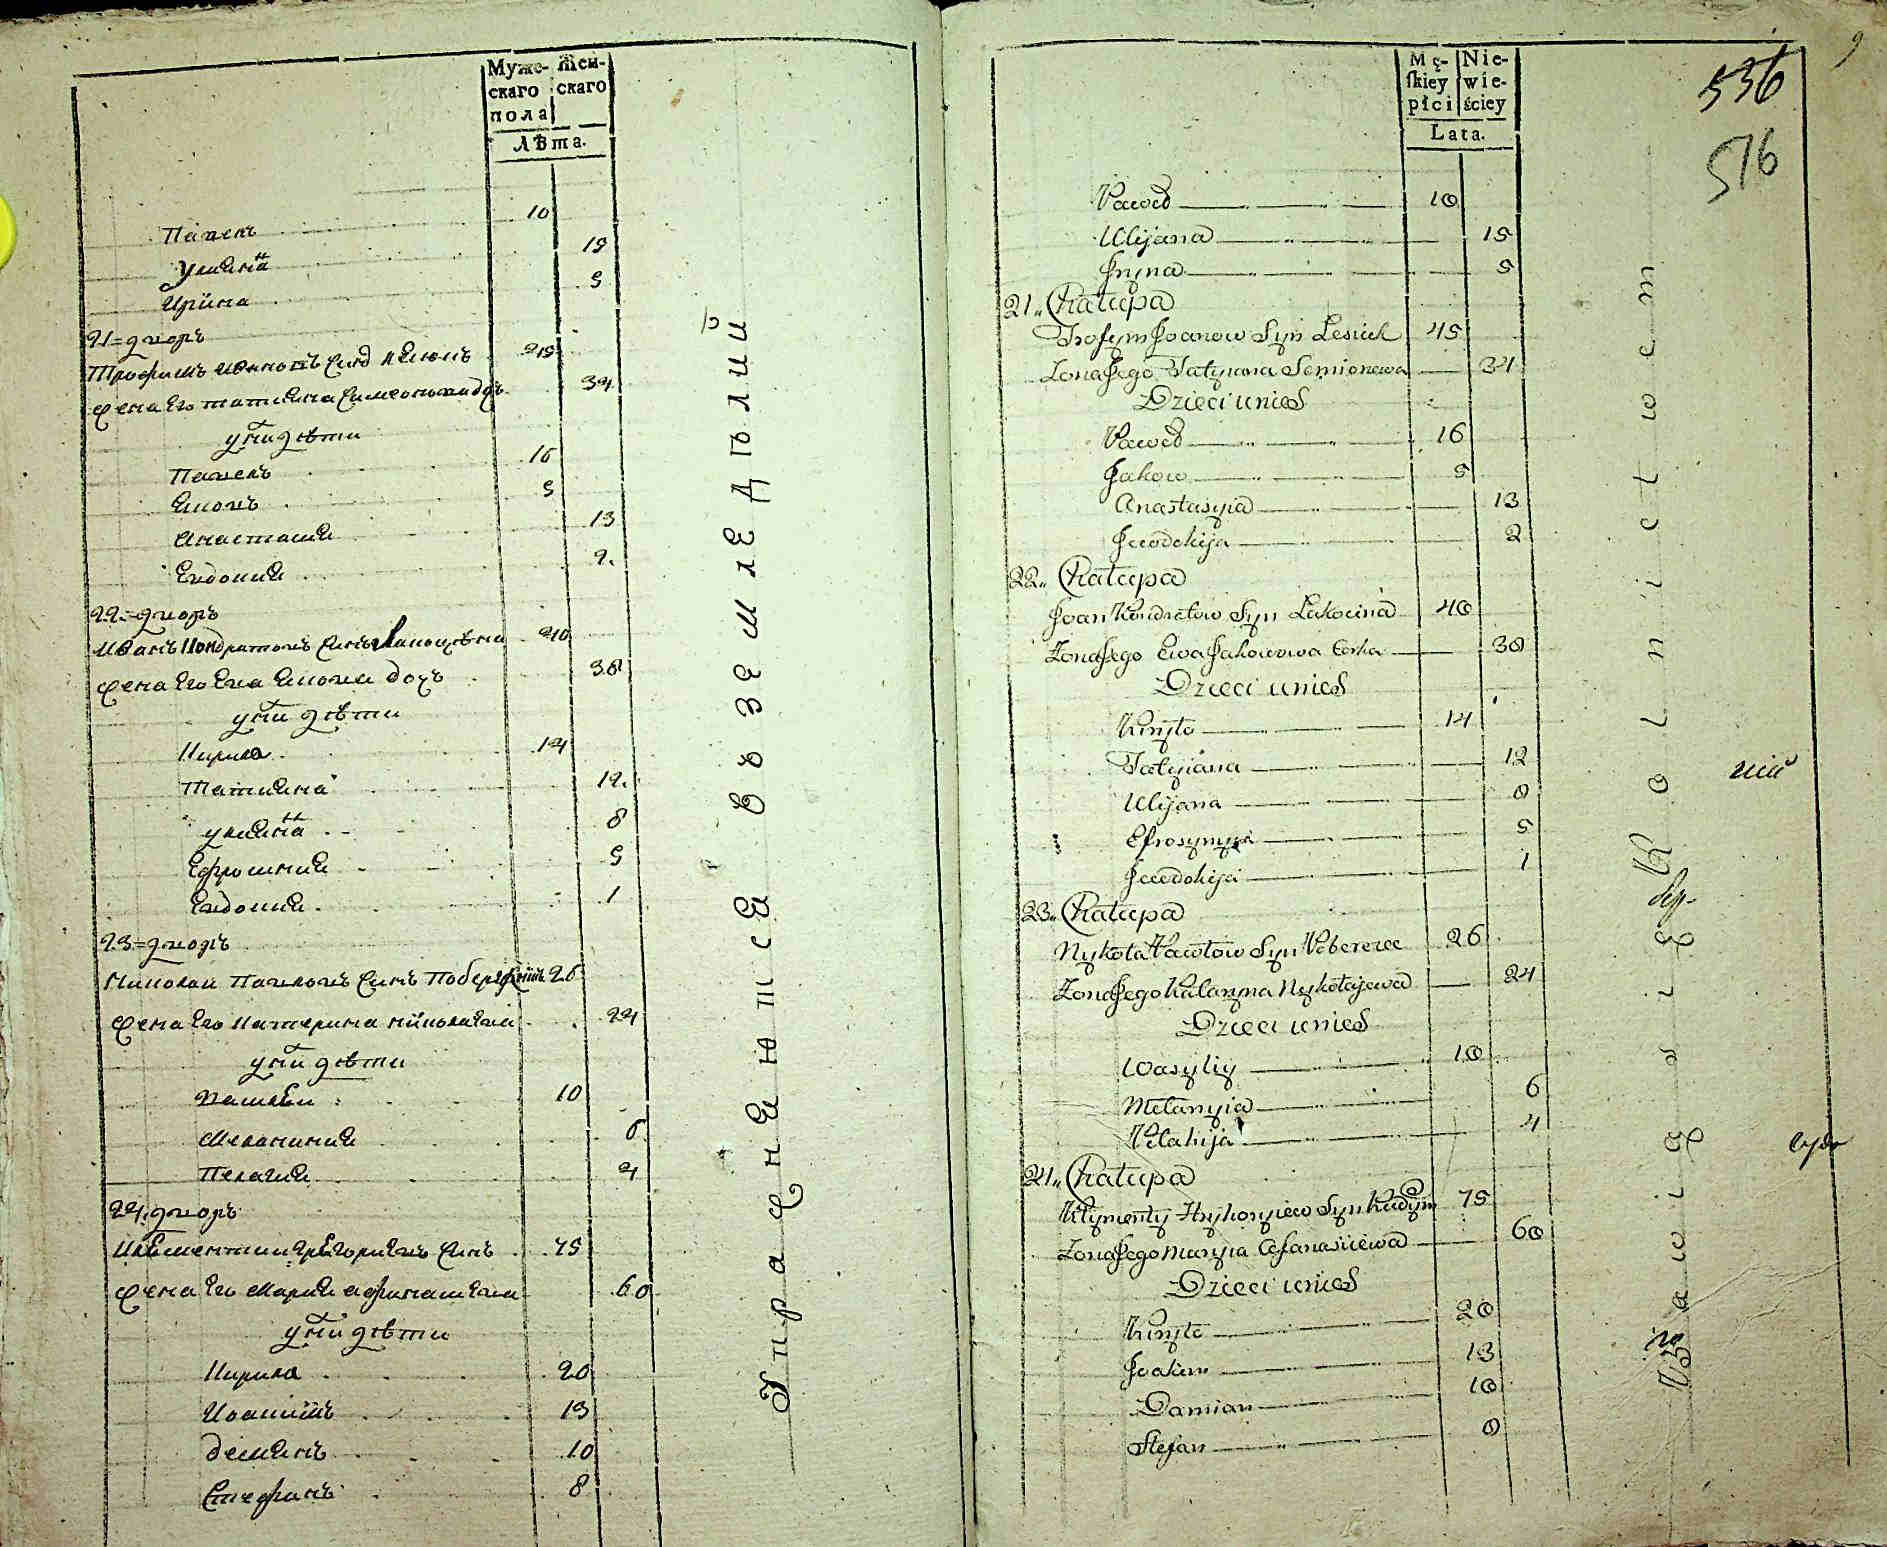 Муже-
скаго
пола
Жен-
скаго
лѣта.
Павелъ 10
Улиана 15
Ирина 5
21=дворъ
Трофимъ Ивановъ Синъ 45
жена Его татиана Симеонова доч 34
у них дѣти
Павелъ 16
Яковъ 5
Анастасия 13
Евдокия 2.
22=дворъ
Иванъ Кондратовъ Синъ 40
жена Его Ева Якова доч 38
у них дѣти
Кирило 14
Татиана 12.
Улиана 8
Ефросиния 5
Евдокия 1
23=дворъ
Николай Павловъ Синъ Побережний 26
жена Его Катерина николаева 24
у них дѣти
Василий 10
Мелания 6
Пелагия 4
24.дворъ
Климентий григориевъ Синъ 75
жена Его Мария афанасиева 60
у них дѣти
Кирило 20
Иоакимъ 13
демианъ 10
Стефанъ 8
Упражняются въ Земледѣлий
9
536
576
Mę-
ſkiey
płci
Nie-
wie-
ściey
Lata.
Paweł 10
Ulijana 15
Iryna 5
21. Chałupa
Trofym Joanow Syn Lesiuk 45
Zona Jego Tatyiana Semionowa 34
Dzieci u nich
Paweł 16
Jakow 5
Anastasyia 13
Jewdokija 2
22. Chałupa
Joan Kondratow Syn Lakocina 40
Zona Jego Ewa Jakowowa Corka 38
Dzieci u nich
Kiryło 14
Tatyiana 12
Ulijana 8
Efrosynyia 5
Jewdokija 1
23. Chałupa
Nykoła Pawłow Syn Pobereze 26
Zona Jego Katarzyna Nykołajewa 24
Dzieci u nich
Wasyliy 10
Melanyia 6
Pelahija 4
24. Chałupa
Klymentiy Hryhoryiew Syn 75
Zona Jego Maryia Afanasiiewa 60
Dzieci u nich
Kiryło 20
Joakim 13
Damian 10
Stefan 8
Bawią się Rolnictwem